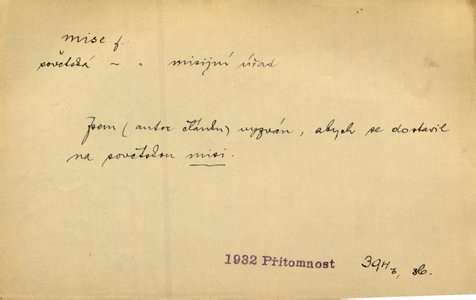 mise f.
sovětská – „ misijní úřad
Jsem (autor článku) vyzván, abych se dostavil
na sovětskou misi.
1932 Přítomnost